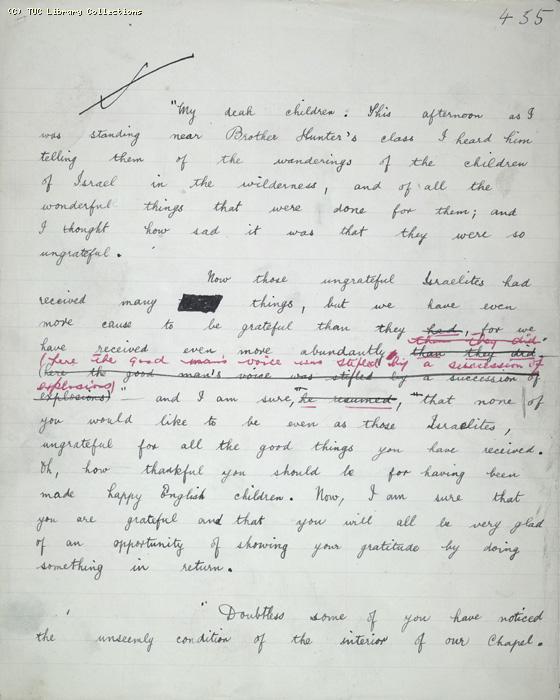 (C) TUC Library Collections
435
"My dear children. This afternoon as I
was standing near Brother Hunter's class I heard him
telling them of the wanderings of the children
of Israel in the wilderness, and of all the
wonderful things that were done for them; and
I thought how sad it was that they were so
ungrateful.
Now those ungrateful Israelites had
received many things, but we have even
more cause to be grateful than they had, for we
than they did."
have received even more abundantly than they did
(here the good man's voice was stifled by a succession of
(here the good man's voice was stifled by a sucession of
explosions)
explosions) "and I am sure," he resumed, "that none of
you would like to be even as those Israelites,
ungrateful for all the good things you have received.
Oh, how thankful you should be for having been
made happy English children. Now, I am sure that
you are grateful and that you will all be very glad
of an opportunity of showing your gratitude by doing
something in return.
"Doubtless some of you have noticed
the unseemly condition of the interior of our Chapel.